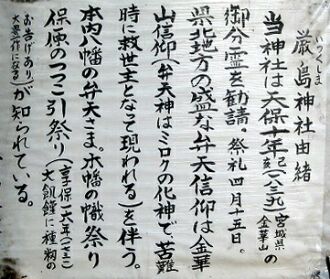 いつくしま
厳島神社由緒
当神社は天保十年己亥(一八三九)宮城県金華山の
御分霊を勧請。祭礼四月十五日。
県北地方の盛な弁天信仰は金華
山信仰(弁天神はミロクの化神で苦難
時に救世主となって現われる)を伴う。
本内八幡の弁天さま。木幡の幟祭り
保原のつつこ引祭り(享保一六年(一七三一)大飢饉に種籾の
お告げあり大豊作になる)が知られている。